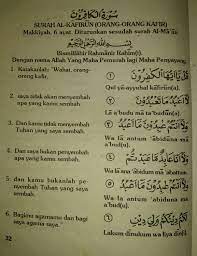 سُوْرَةُ الْكَافِرُوْنَ
SURAH AL-KAFIRUN (ORANG-ORANG KAFIR)
Makkiyah, 6 ayat. Diturunkan sesudah surah Al-Mā'ūn
بِسْمِ اللهِ الرَّحْمٰنِ الرَّحِيْمِ
Bismillāhir Rahmānir Rahīm(i).
Dengan nama Allah Yang Maha Pemurah lagi Maha Penyayang
1. Katakanlah: "Wahai, orang-orang kafir,
قُلْ يٰٓاَيُّهَا الْكٰفِرُوْنَ ۙ ١
Qul yā ayyuhal kāfirūn(a)
2. saya tidak akan menyembah apa yang kamu sembah.
لَآ اَعْبُدُ مَا تَعْبُدُوْنَ ۙ ٢
Lā a'budu mā ta'budūn(a).
3. Dan kamu tidak menyembah Tuhan yang saya sembah.
وَلَآ اَنْتُمْ عٰبِدُوْنَ مَآ اَعْبُدُ ۚ ٣
Wa lā antum 'ābidūna mā a'bud(u).
4. Dan saya bukan penyembah apa yang kamu sembah.
وَلَآ اَنَا۠ عَابِدٌ مَّا عَبَدْتُّمْ ۙ ٤
Wa lā ana 'ābidum mā 'abadtum
5. dan kamu bukanlah penyembah Tuhan yang saya sembah.
وَلَآ اَنْتُمْ عٰبِدُوْنَ مَآ اَعْبُدُ ۗ ٥
Wa lā antum 'ābidūna mā a'bud(u).
6. Bagimu agamamu dan bagi saya agama saya."
لَكُمْ دِيْنُكُمْ وَلِيَ دِيْنِ ٦
Lakum dīnukum wa liya dīn
32